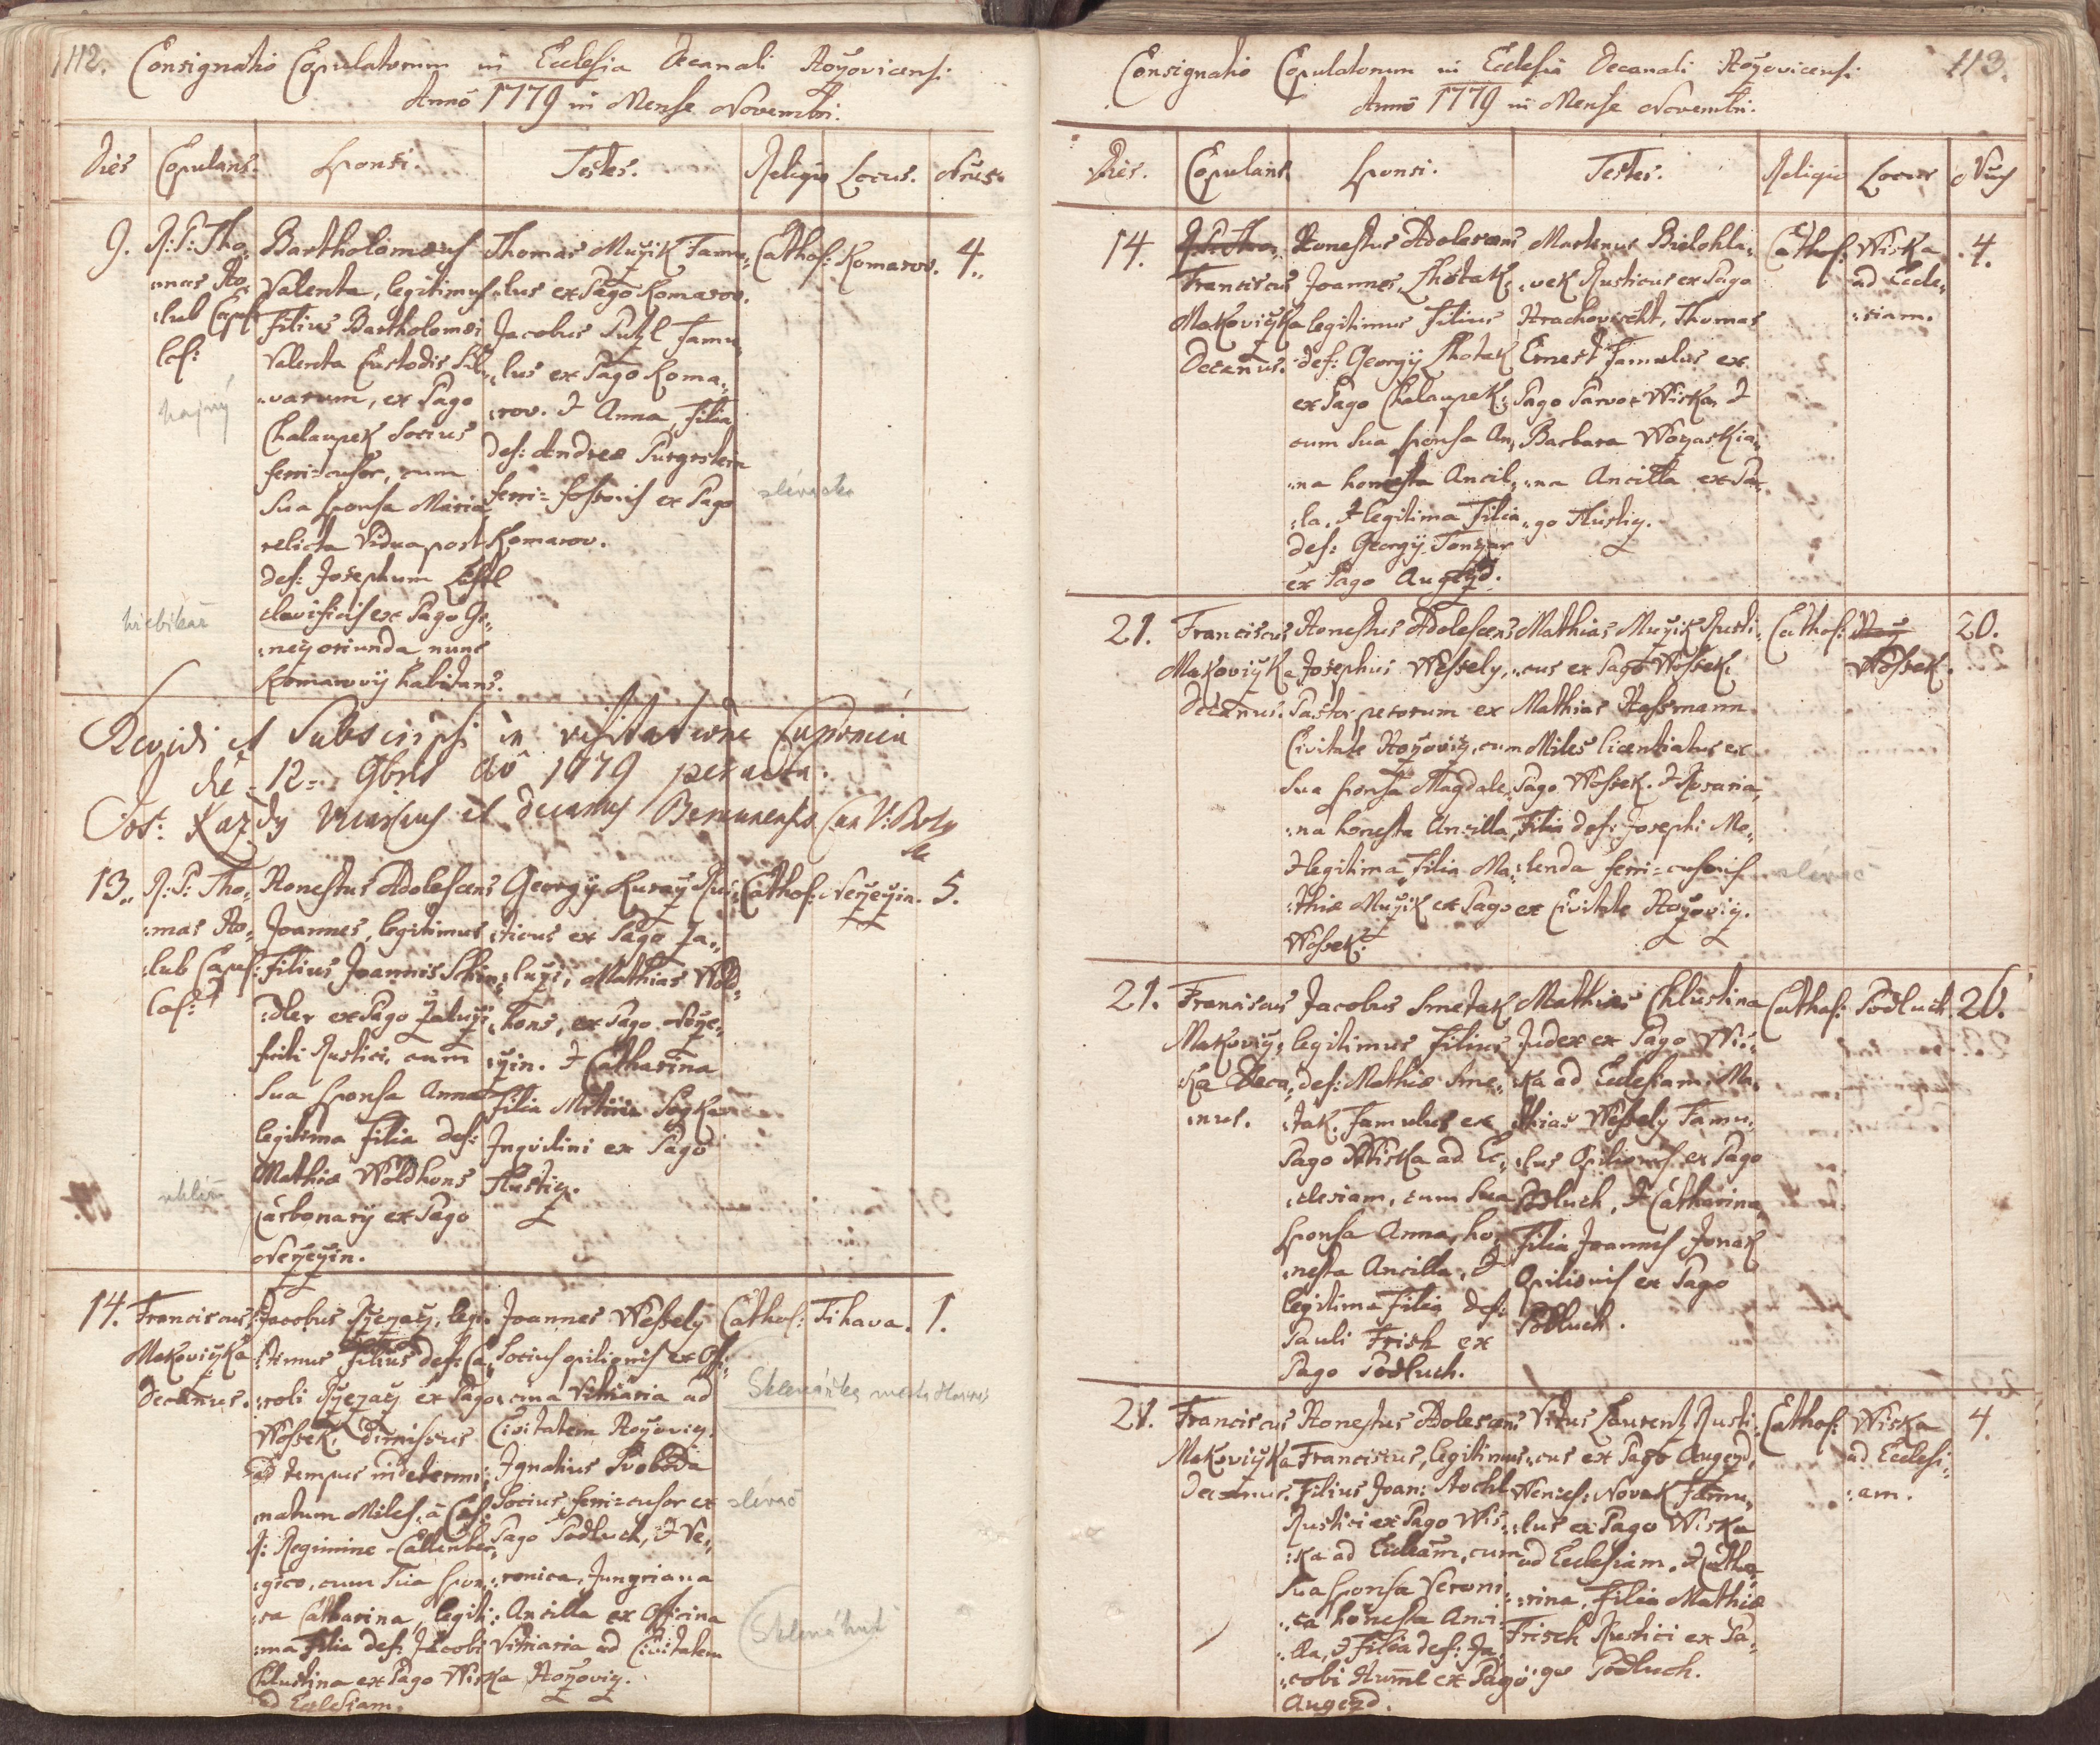 112. Consignatio Copulatorum in Ecclesia Decanali Hoŕovicensi.
Anno 1779 in Mense Novembri.
Dies Copulans. Sponsi. Testes. Religio Locus. Nrus.
9.
R: P: Tho„
„mas Ho„
„lub Capel
hajný
Bartholomæus
Valenta, legitimus
Filius Bartholomæi
Valenta Custodis Sil„
„varum, ex Pago
Chalaupek Socius
ferri=cusor, cum
Sua Sponsa Maria
relicta Vidua post
def: Josephum
clavificis ex Pago
oriunda nunc
Komarovÿ habitans.
hřebíkář
Thomas Mużik Famu„
„lus ex Pago Komarov.
Jacobus Putzl Famu„
„lus ex Pago Koma„
„rov. & Anna, Filia
def: Andreæ Purgstein
ferri=fossoris ex Pago
Komarov.
Cathol: Komarov. 4„
Revidi et Subscripsi in visitatione
die 12 9bris Ao 1779 peracta.
Jos: Kazdy Vicarius et Decanus Beraunensis
13„
R: P: Tho„
„mas Ho„
„lub Capel:
uhlíř
Honestus Adolescens
Joannes, legitimus
Filius Joannis Schin„
„dler ex Pago Zalużi
Rustici, cum
Sua Sponsa Anna
legitima Filia def:
Mathiæ Woldhons
Carbonarÿ ex Pago
Neżeżin.
Georgÿ Kurzÿ Rus„
„ticus ex Pago Za„
„lużi, Mathias Wold„
„hons, ex Pago Neże„
„żin. & Catharina
Filia
Inquilini ex Pago
Hustiż.
Cathol: Neżeżin. 5.
14.
Franciscus
Makoviżka
Decanus.
Jacobus legi„
„timus Filius def: Ca„
„roli ex Pago
Wossek, dimissus
ad tempus indetermi„
„natum Miles, à Cæs:
R: Regimine Callenber„
„gico, cum Sua Spon„
„sa Catharina, legiti„
„ma Filia def: Jacobi
Chlustina ex Pago Wiska
ad Ecclesiam.
Joannes Wessely
Socius opilionis ex Offi„
„cina Vitriaria ad
Civitatem Hoŕoviż.
Ignatius Svoboda
Socius ferri=cusor ex
Pago Podluch, & Ve„
„ronica, Jungriana
Ancilla ex Officina
Vitriaria ad Civitatem
Hoŕoviż.
Cathol: Tihava. 1.
slévač
Sklená huť
Consignatio Copulatorum in Ecclesia Decanali Hoŕovicensi. 113.
Anno 1779 in Mense Novembri.
Dies. Copulans Sponsi. Testes. Religio Locus Nrus
14.
Franciscus
Makoviżka
Decanus.
Honestus Adolescens
Joannes, Lhoták,
legitimus Filius
def: Georgÿ Lhoták
ex Pago Chalaupek,
cum Sua Sponsa An„
„na honesta Ancil„
„la, & legitima Filia
def: Georgÿ Tonzar
ex Pago Augezd.
Martinus Bielohla„
„vek Rusticus ex Pago
Hrachovischt, Thomas
Ernest Famulus ex
Pago Parvo Wiska, &
Barbara Wozaskia„
„na Ancilla ex Pa„
„go Hustiż.
Cathol: Wiska
ad Eccle„
„siam.
4.
21.
Franciscus
Makoviżka
Decanus.
Honestus Adolescens
Josephus Wessely,
Pastor pecorum ex
Civitate Hoŕoviż, cum
Sua Sponsa Magdale„
„na honesta Ancilla,
& legitima Filia Ma„
„thiæ Mużik ex Pago
Wossek.
Mathias Mużik Rusti„
„cus ex Pago Wossek.
Mathias Hassmann
Miles licentiatus ex
Pago Wossek. & Rosaria,
Filia def: Josephi Mo„
„lenda ferri=cusoris
ex Civitate Hoŕoviż.
slévač
Cathol: Wossek. 20.
21.
Franciscus
Makoviż„
„ka Deca„
„nus.
Jacobus Smetak,
legitimus Filius
def: Mathiæ Sme„
„tak, Famulus ex
Pago Wiska ad Ec„
„clesiam, cum Sua
Sponsa Anna, ho„
„nesta Ancilla, &
legitima Filia def:
Pauli Frisch ex
Pago Podluch.
Mathias Chlustina
Judex ex Pago Wi„
„ska ad Ecclesiam. Ma„
„thias Wessely Famu„
„lus Opilionis ex Pago
Podluch, & Catharina
Filia Joannis Jonak
Opilionis ex Pago
Podluch.
Cathol: Podluch. 26.
21.
Franciscus
Makoviżka
Decanus.
Honestus Adolescens
Franciscus, legitimus
Filius Joan: Hochl
Rustici ex Pago Wis„
„ka ad Eccleam, cum
Sua Sponsa Veroni„
„ca honesta Anci„
„lla, & Filia def: Ja„
„cobi Humml ex Pago
Augezd.
Vitus Laurentz Rusti„
„cus ex Pago Augezd,
Wences: Novak Famu„
„lus ex Pago Wiska
ad Ecclesiam. & Catha„
„rina, Filia Mathiæ
Frisch Rustici ex Pa„
„go Podluch.
Cathol: Wiska
ad Ecclesi„
„am.
4.